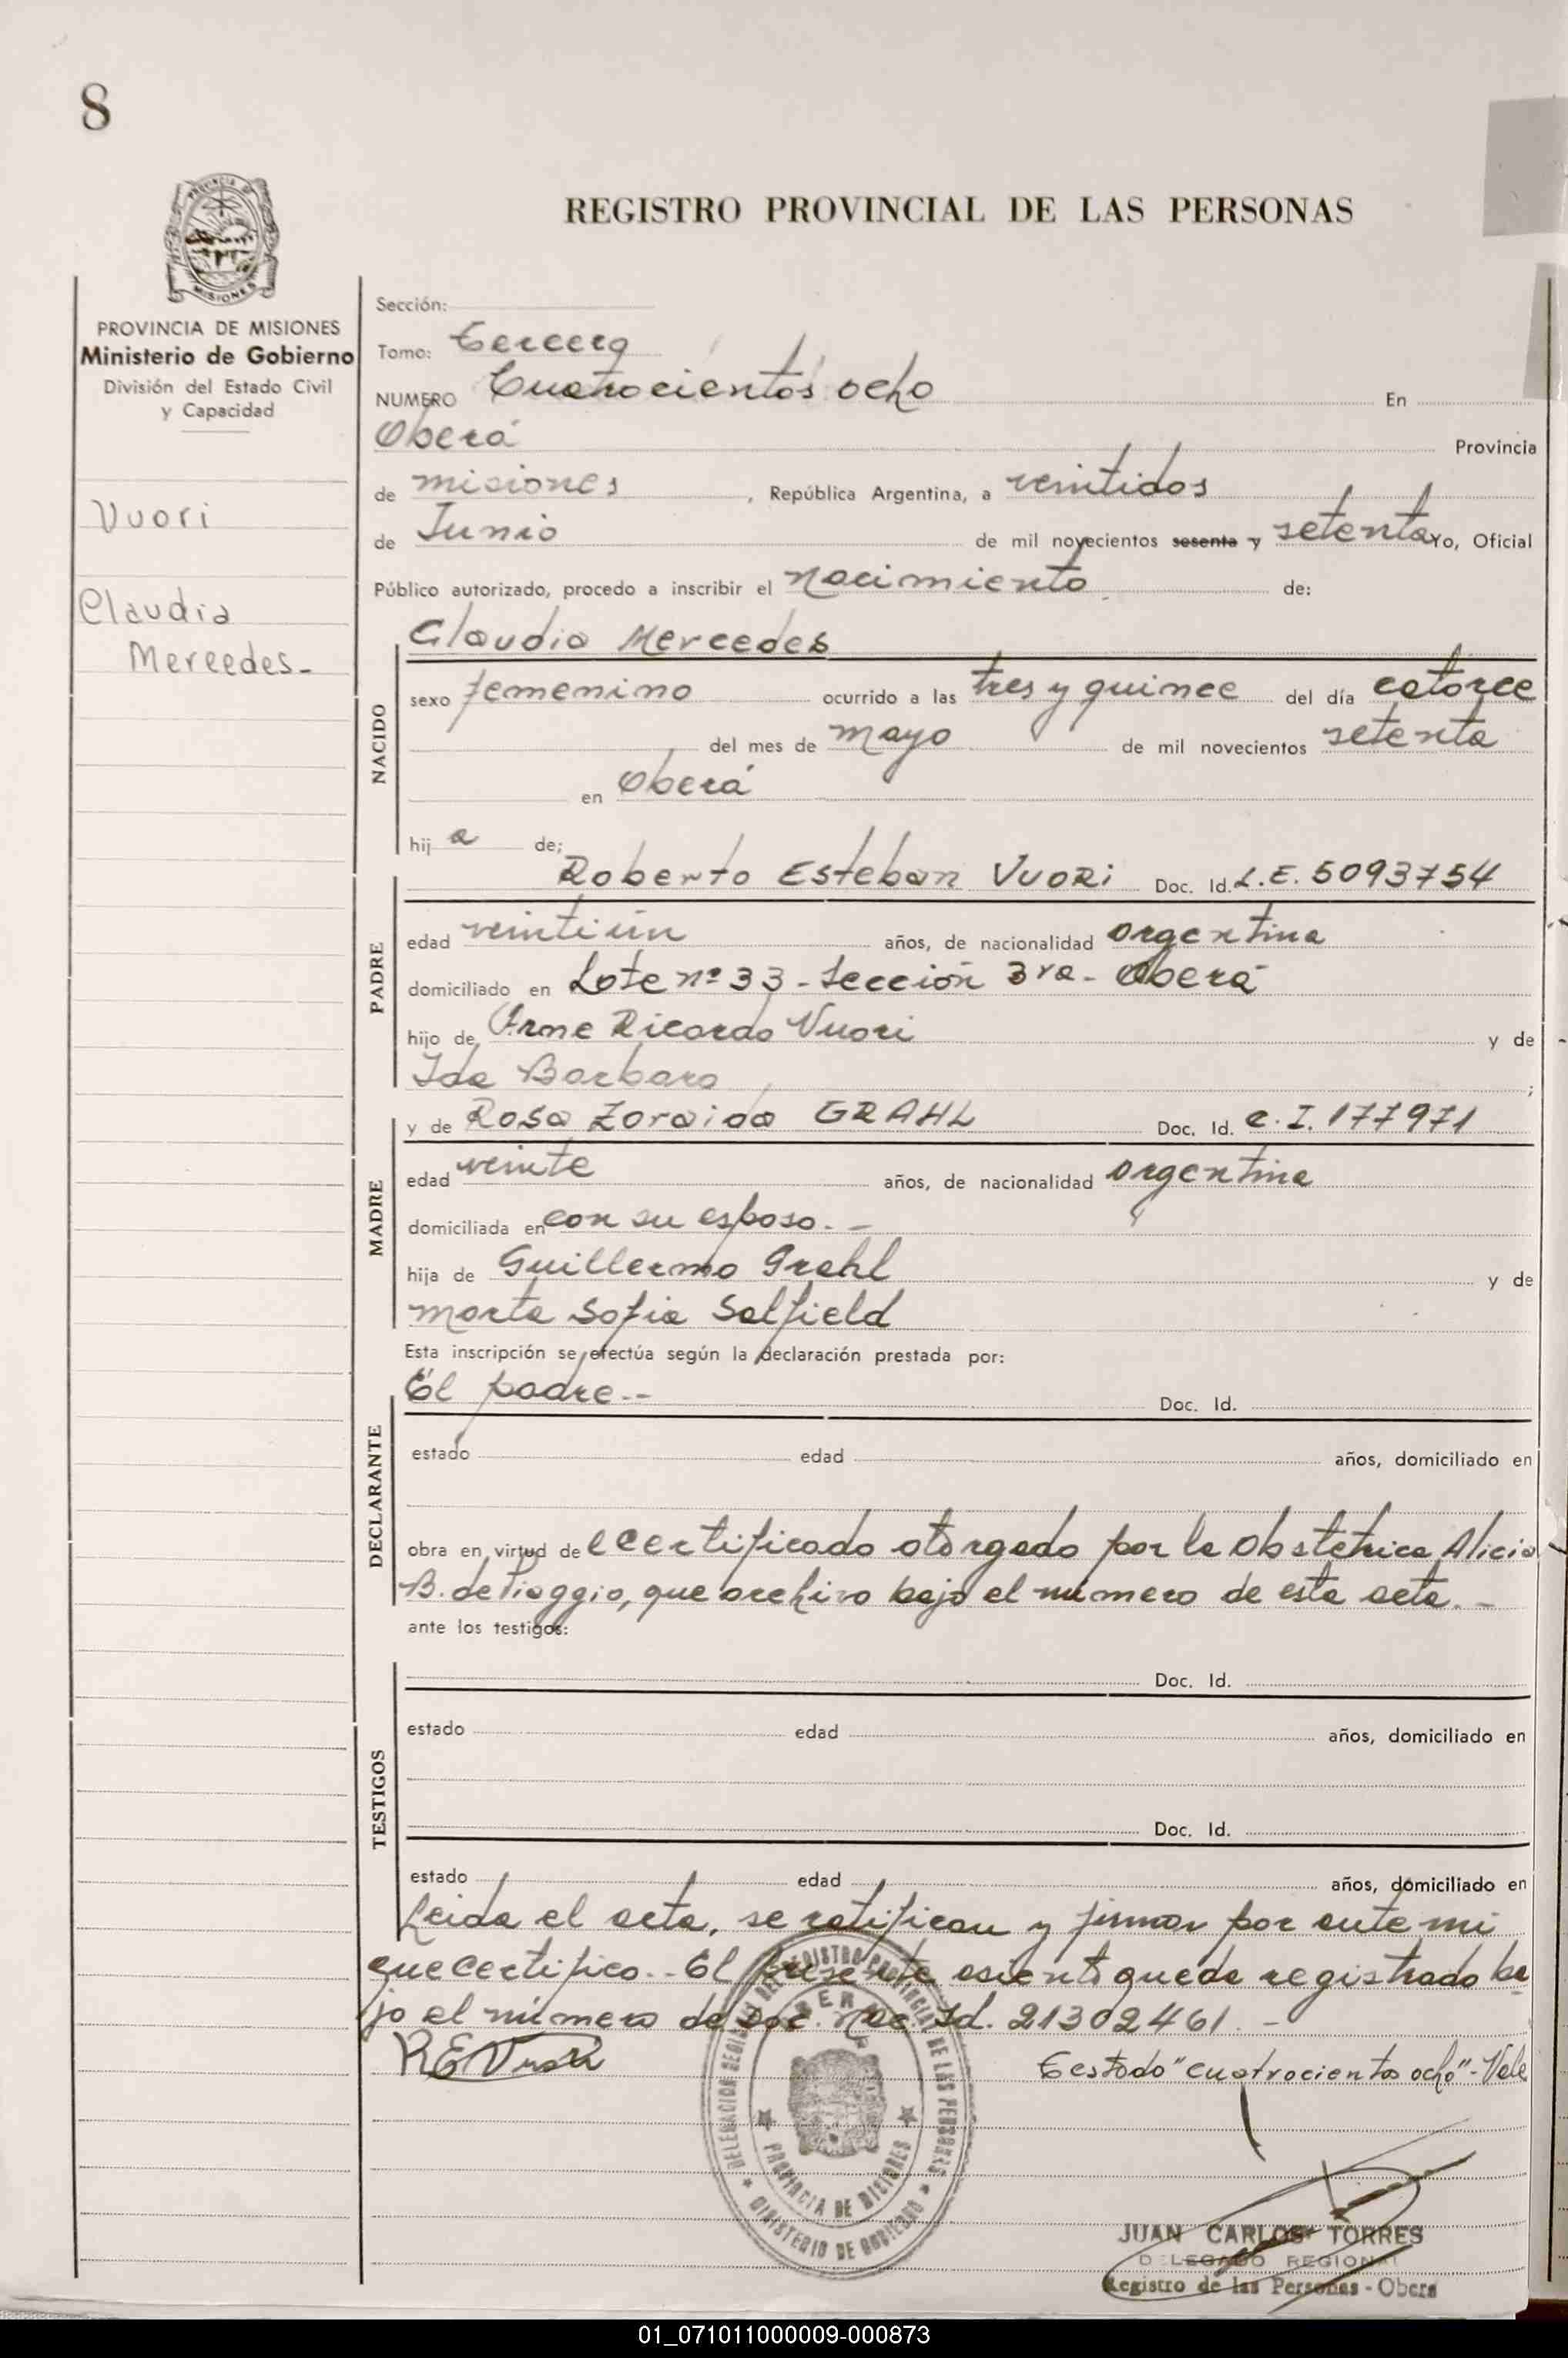 8
REGISTRO PROVINCIAL DE LAS PERSONAS
PROVINCIA DE MISIONES
Ministerio de Gobierno
División del Estado Civil
y Capacidad
Vuori
Claudia
Mercedes-
Sección:
Tomo: Tercero
NUMERO Cuatrocientos ocho En
Oberá Provincia
de misiones, República Argentina, a veintidos
de Junio de mil novecientos sesenta y setenta Yo, Oficial
Público autorizado, procedo a inscribir el nacimiento de:
NACIDO
Claudia Mercedes
sexo femenino ocurrido a las tres y quince del día catorce
del mes de mayo de mil novecientos setenta
en Oberá
hij a de;
PADRE
Roberto Esteban VUORi Doc. Id. L.E. 5093754
edad veintiún años, de nacionalidad argentina
domiciliado en Lote nº 33 - Sección 3ra - Oberá
hijo de Arne Ricardo Vuori y de
Ida Barbaro ;
MADRE
y de Rosa Zoraida GRAHL Doc. Id. C.I. 177971
edad veinte años, de nacionalidad argentina
domiciliada en con su esposo. -
hija de Guillermo Grahl y de
Marta Sofia Salfield
Esta inscripción se efectúa según la declaración prestada por:
DECLARANTE
El padre.-- Doc. Id.
estado edad años, domiciliado en
obra en virtud de el certificado otorgado por la obstetrica Alicia
B. de Piaggio, que archivo bajo el número de esta acta. -
ante los testigos:
TESTIGOS
Doc. Id.
estado edad años, domiciliado en
Doc. Id.
estado edad años, domiciliado en
Leida el acta, se ratifican y firman por ante mi
que certifico.- El presente asiento queda registrado ba
jo el número de Doc. Nac. Id. 21302461. -
REVuori
Testado "cuatrocientos ocho" - Vale
DELEGACION REGIONAL DEL REGISTRO PROVINCIAL DE LAS PERSONAS
MINISTERIO DE GOBIERNO
PROVINCIA DE MISIONES
JUAN CARLOS TORRES
DELEGADO REGIONAL
Registro de las Personas - Obera
01_071011000009-000873